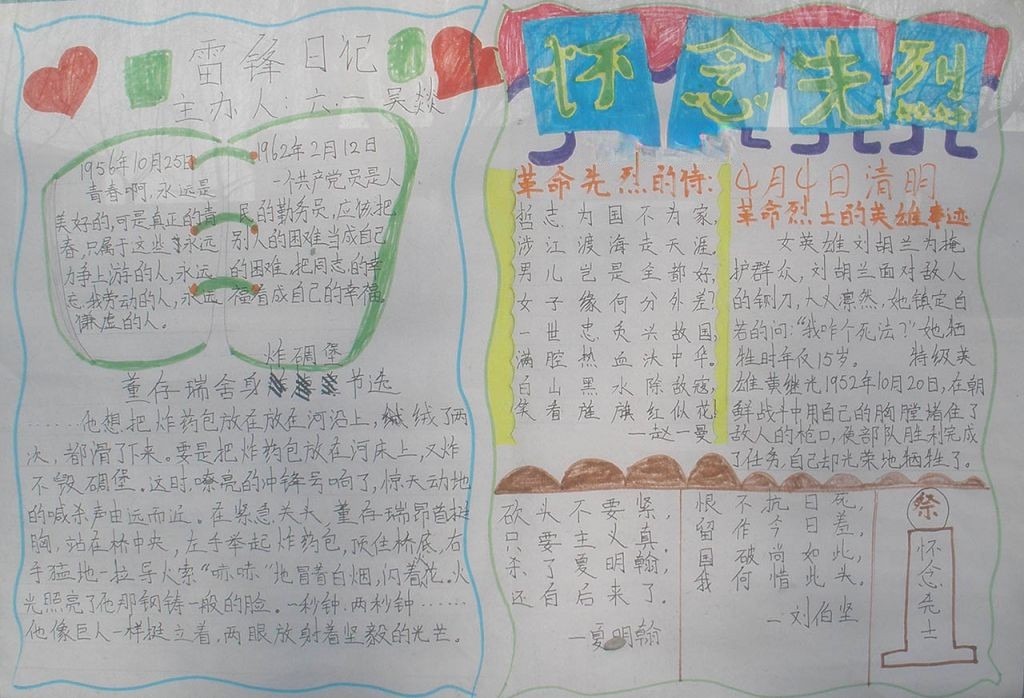 雷锋日记
主办人：六·一 吴燚
1956年10月25日
青春啊，永远是
美好的，可是真正的青
春，只属于这些永远
力争上游的人，永远
忘我劳动的人，永远
谦虚的人。
1962年2月12日
一个共产党员是人
民的勤务员，应该把
别人的困难当成自己
的困难，把同志的幸
福看成自己的幸福。
炸碉堡
董存瑞舍身节选
……他想把炸药包放在放在河沿上，绒了两
次，都滑了下来。要是把炸药包放在河床上，又炸
不毁碉堡。这时，嘹亮的冲锋号响了，惊天动地
的喊杀声由远而近。在紧急关头，董存瑞昂首挺
胸，站在桥中央，左手举起炸药包，顶住桥底，右
手猛地一拉导火索“哧哧”地冒着白烟，闪着花。火
光照亮了他那钢铸一般的脸。一秒钟，两秒钟……
他像巨人一样挺立着，两眼放射着坚毅的光芒。
怀念先烈
革命先烈的侍：
哲志为国不为家，
涉江渡海走天涯。
男儿岂是全都好，
女子缘何分外差？
一世忠炙兴故国，
满腔热血沃中华。
白山黑水除故寇，
笑看旌旗红似花。
—赵一曼
4月4日清明
革命烈士的英雄事迹
女英雄刘胡兰为掩
护群众，刘胡兰面对敌人
的铡刀，大义凛然，她镇定自
若的问：“我咋个死法？”她牺
牲时年仅15岁。 特级英
雄黄继光1952年10月20日，在朝
鲜战斗中用自己的胸膛堵住了
敌人的枪口，使部队胜利完成
了任务，自己却光荣地牺牲了。
砍头不要紧，
只要主义真，
杀了夏明翰，
还自后来了。
—夏明翰
恨不抗日死，
留作今日羞，
国破尚如此，
我何惜此头。
—刘伯坚
祭
怀念先士